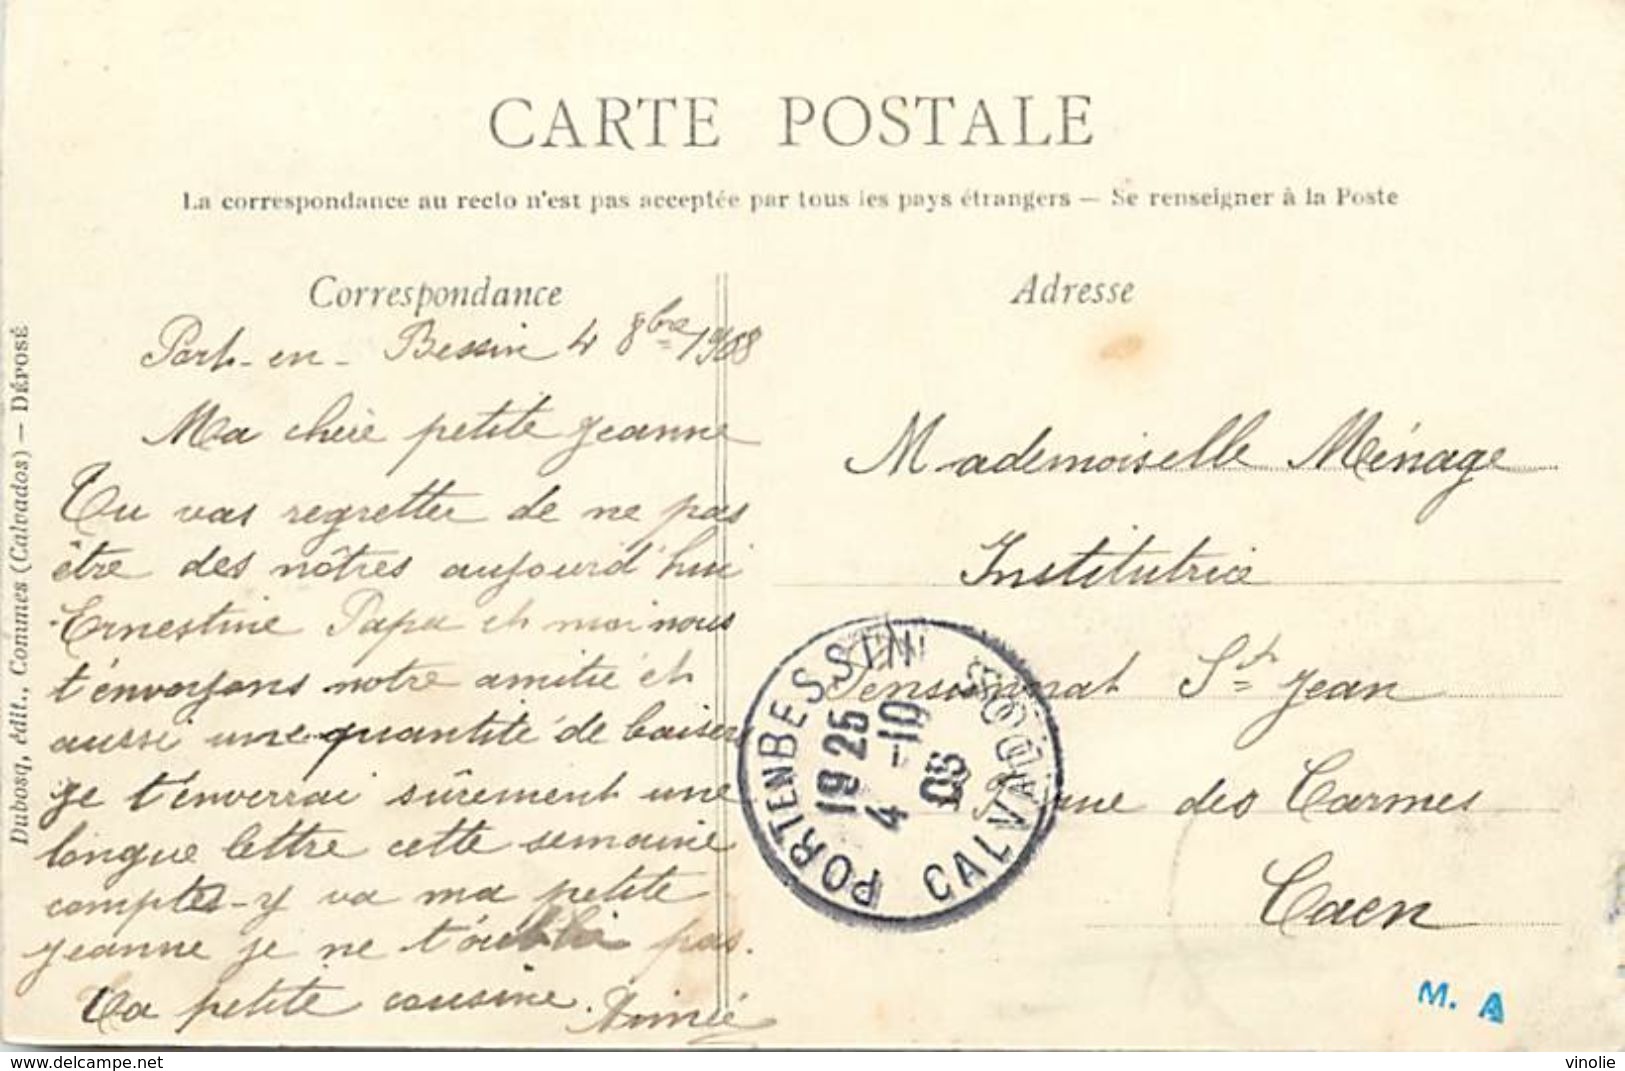 CARTE POSTALE
La correspondance au recto n'est pas acceptée par tous les pays étrangers — Se renseigner à la Poste
Correspondance
Port-en-Bessin 4 8bre 1908
Ma chère petite Jeanne
Tu vas regretter de ne pas
être des nôtres aujourd'hui
Ernestine Papa et moi nous
t'envoyons notre amitié et
aussi une quantité de baisers
je t'enverrai sûrement une
longue lettre cette semaine
compte-y va ma petite
Jeanne je ne t'oublie pas.
Ta petite cousine. Aimée
Adresse
Mademoiselle Ménage
Institutrice
Pensionnat St Jean
rue des Carmes
Caen
PORT EN BESSIN
CALVADOS
19 25
4 -10
M. A
Dubosq, édit., Commes (Calvados) — DÉPOSÉ
vinolie
https://www.delcampe.net